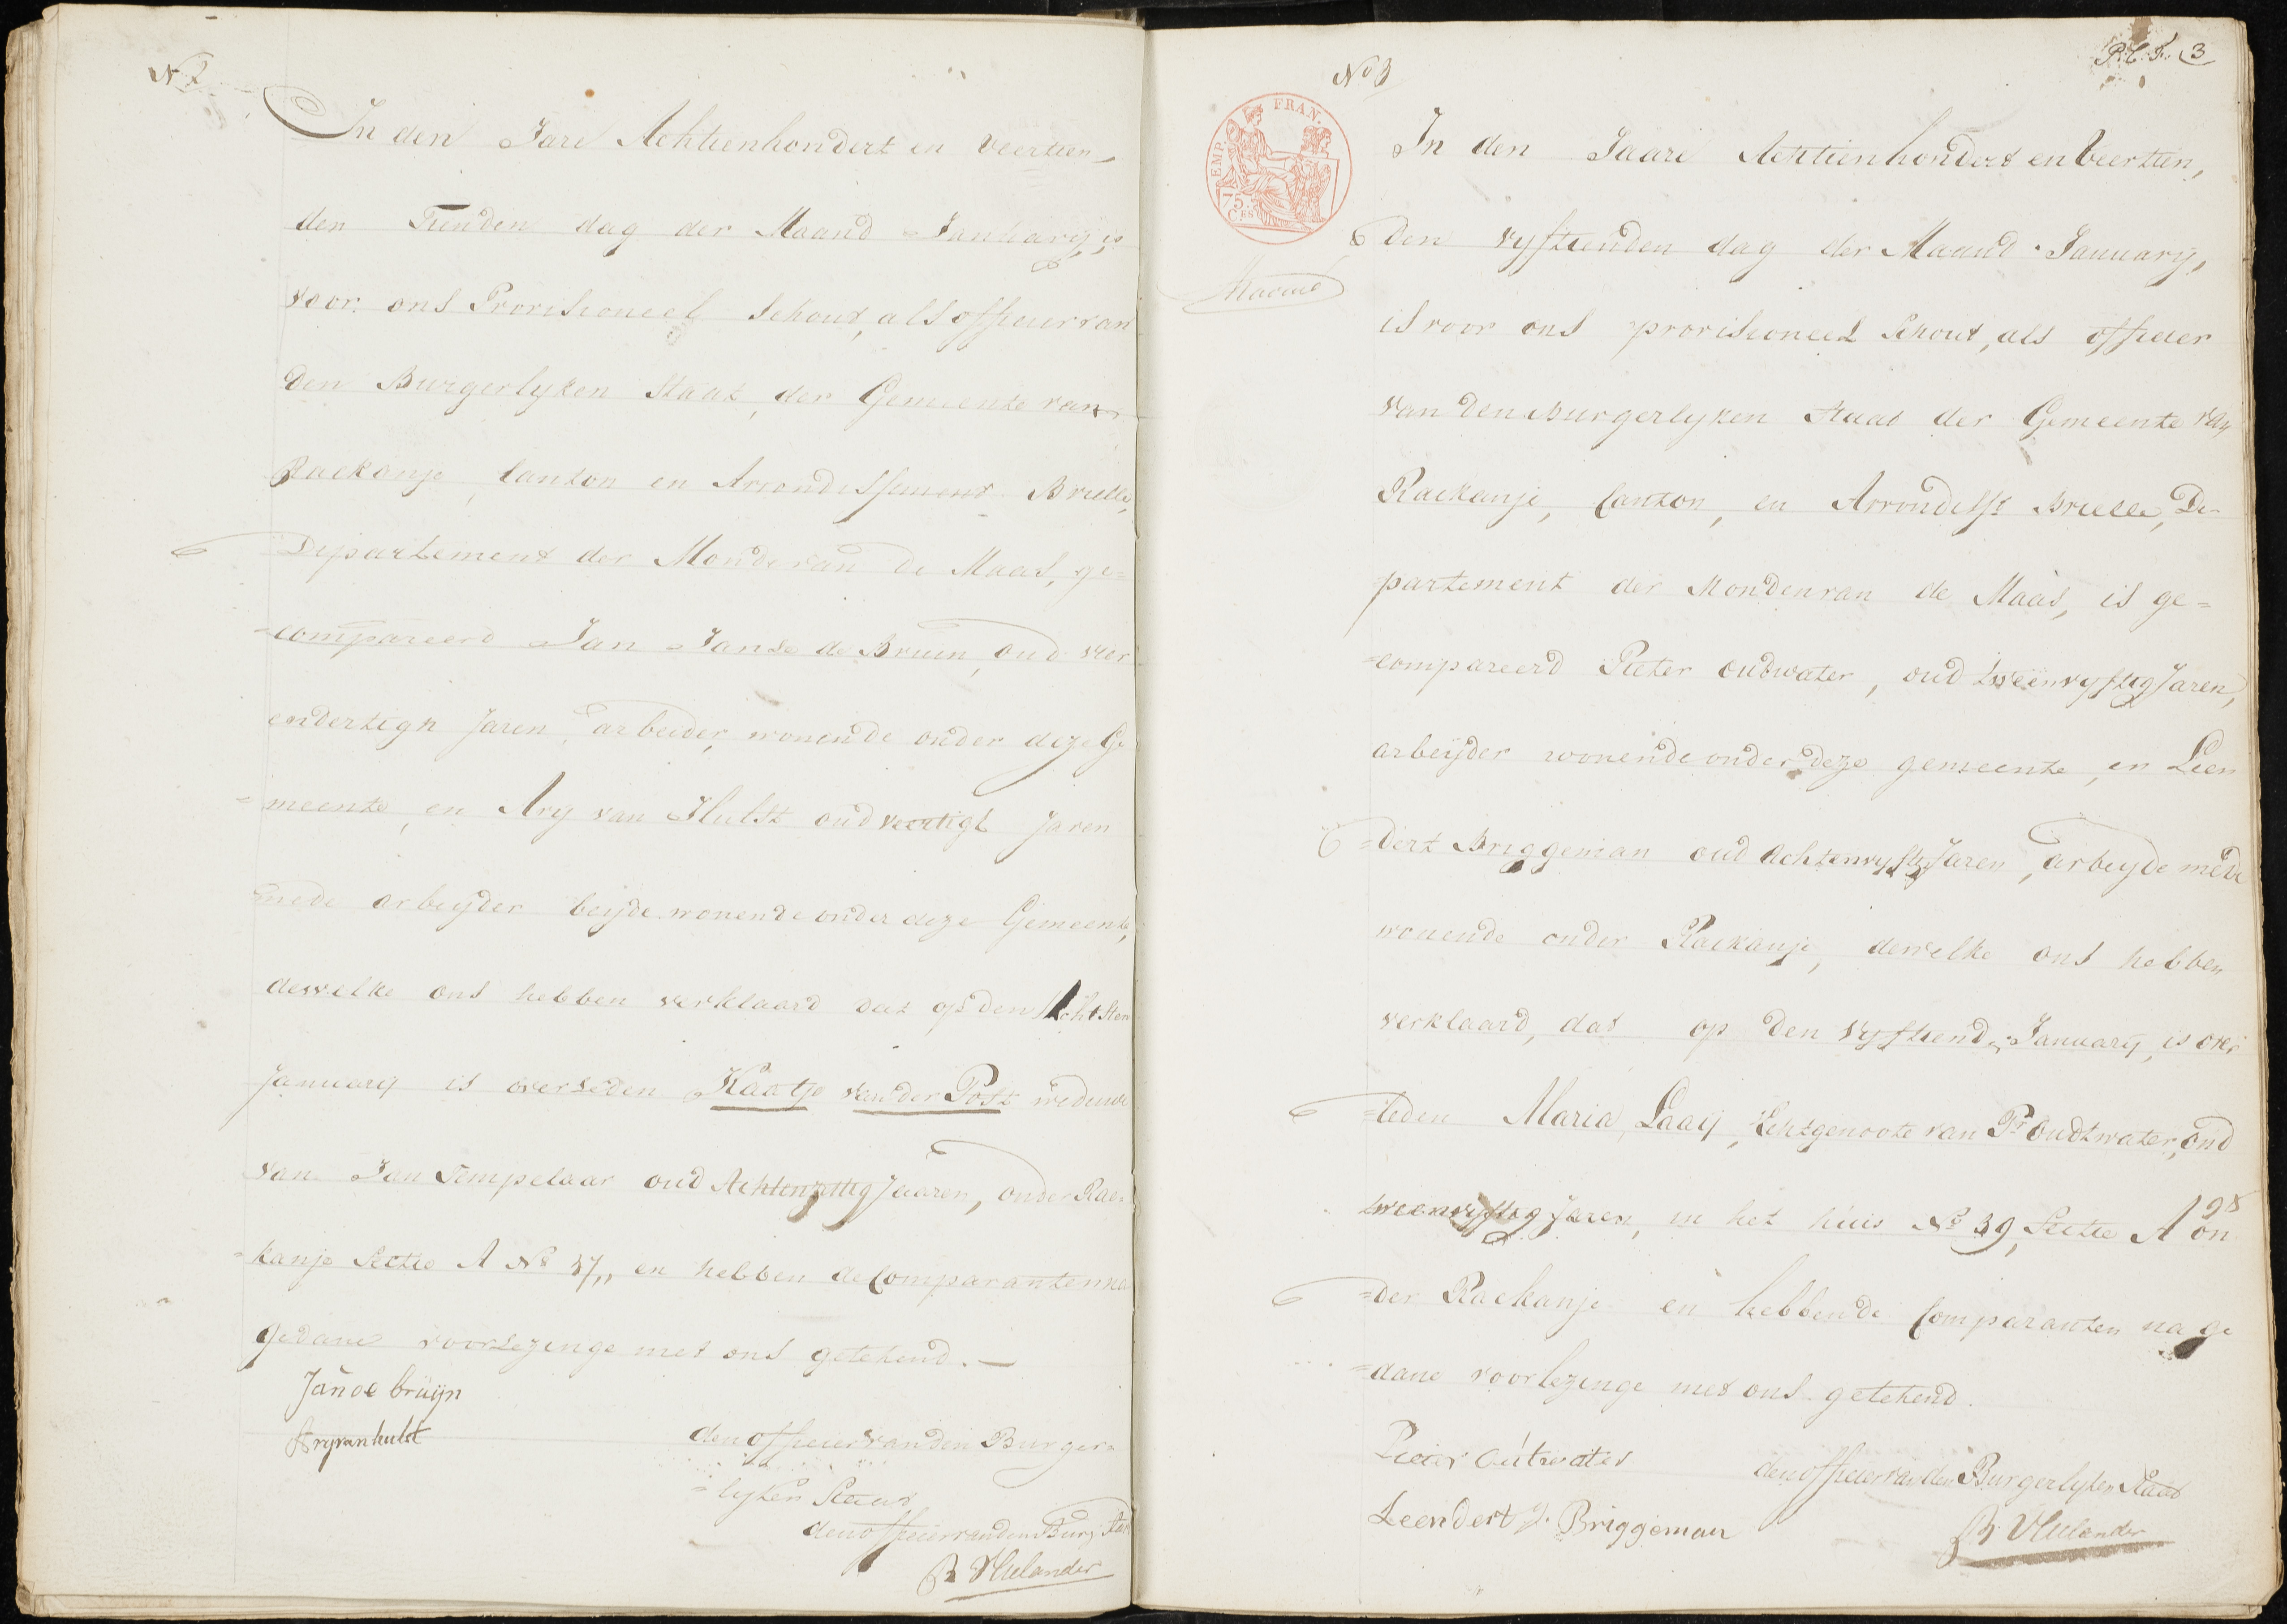 N 2
In den Jare Achtienhondert en veertien,
den Tienden dag der Maand January, is
voor ons Provisioneel Schout, als officier van
den Burgerlyken Staat, der Gemeente van
Rackanje, Canton en Arrondissement Brielle,
Departement der Monde van de Maas, ge=
=compareerd Jan Janse de Bruin, oud vier
endertigh Jaren, arbeider, wonende onder deze Ge
=meente, en Ary van Hulst oud veertigh Jaren
mede arbeyder beyde wonende onder deze Gemeente,
dewelke ons hebben verklaard dat op den Achtsten
January is overleden Kaatje van der Post weduwe
van Jan Tempelaar oud Jaaren, onder Rac=
=kanje Sectie A No 37,, en hebben de Comparanten na
gedane voorlezinge met ons getekend.—
Jan de bruijn
Aryvanhulst
den officier van den Burger=
=lyken Staat
den officier van den Burg Staat
No 3
3
EMP. FRAN.
75
CES
In den Jaare Achtienhondert en veertien,
den vyftienden dag der Maand January,
is voor ons provisioneel Schout, als officier
van den Burgerlyken Staat der Gemeente van
Rackanje, Canton, en Arrondisst Brielle, De-
partement der Monden van de Maas, is ge=
=compareerd Pieter oudwater, oud tweenvyftig Jaren,
arbeyder wonende onder deze gemeente, en Leen
=dert Briggeman oud achtenvyftig Jaren, arbeyde mede
wonende onder Rackanje, dewelke ons hebben
verklaard, dat op den vyftiende January, is over
=leden Maria Laaij, Echtgenoote van Pr Oudtwater, oud
tweenvyftig Jaren, in het huis No 39, Sectie A on
=der Rackanje en hebbende Comparanten na ge
=dane voorlezinge met ons getekend.
Pieter outwater
Leendert J. Briggeman
den officier van den Burgerlyken Staat